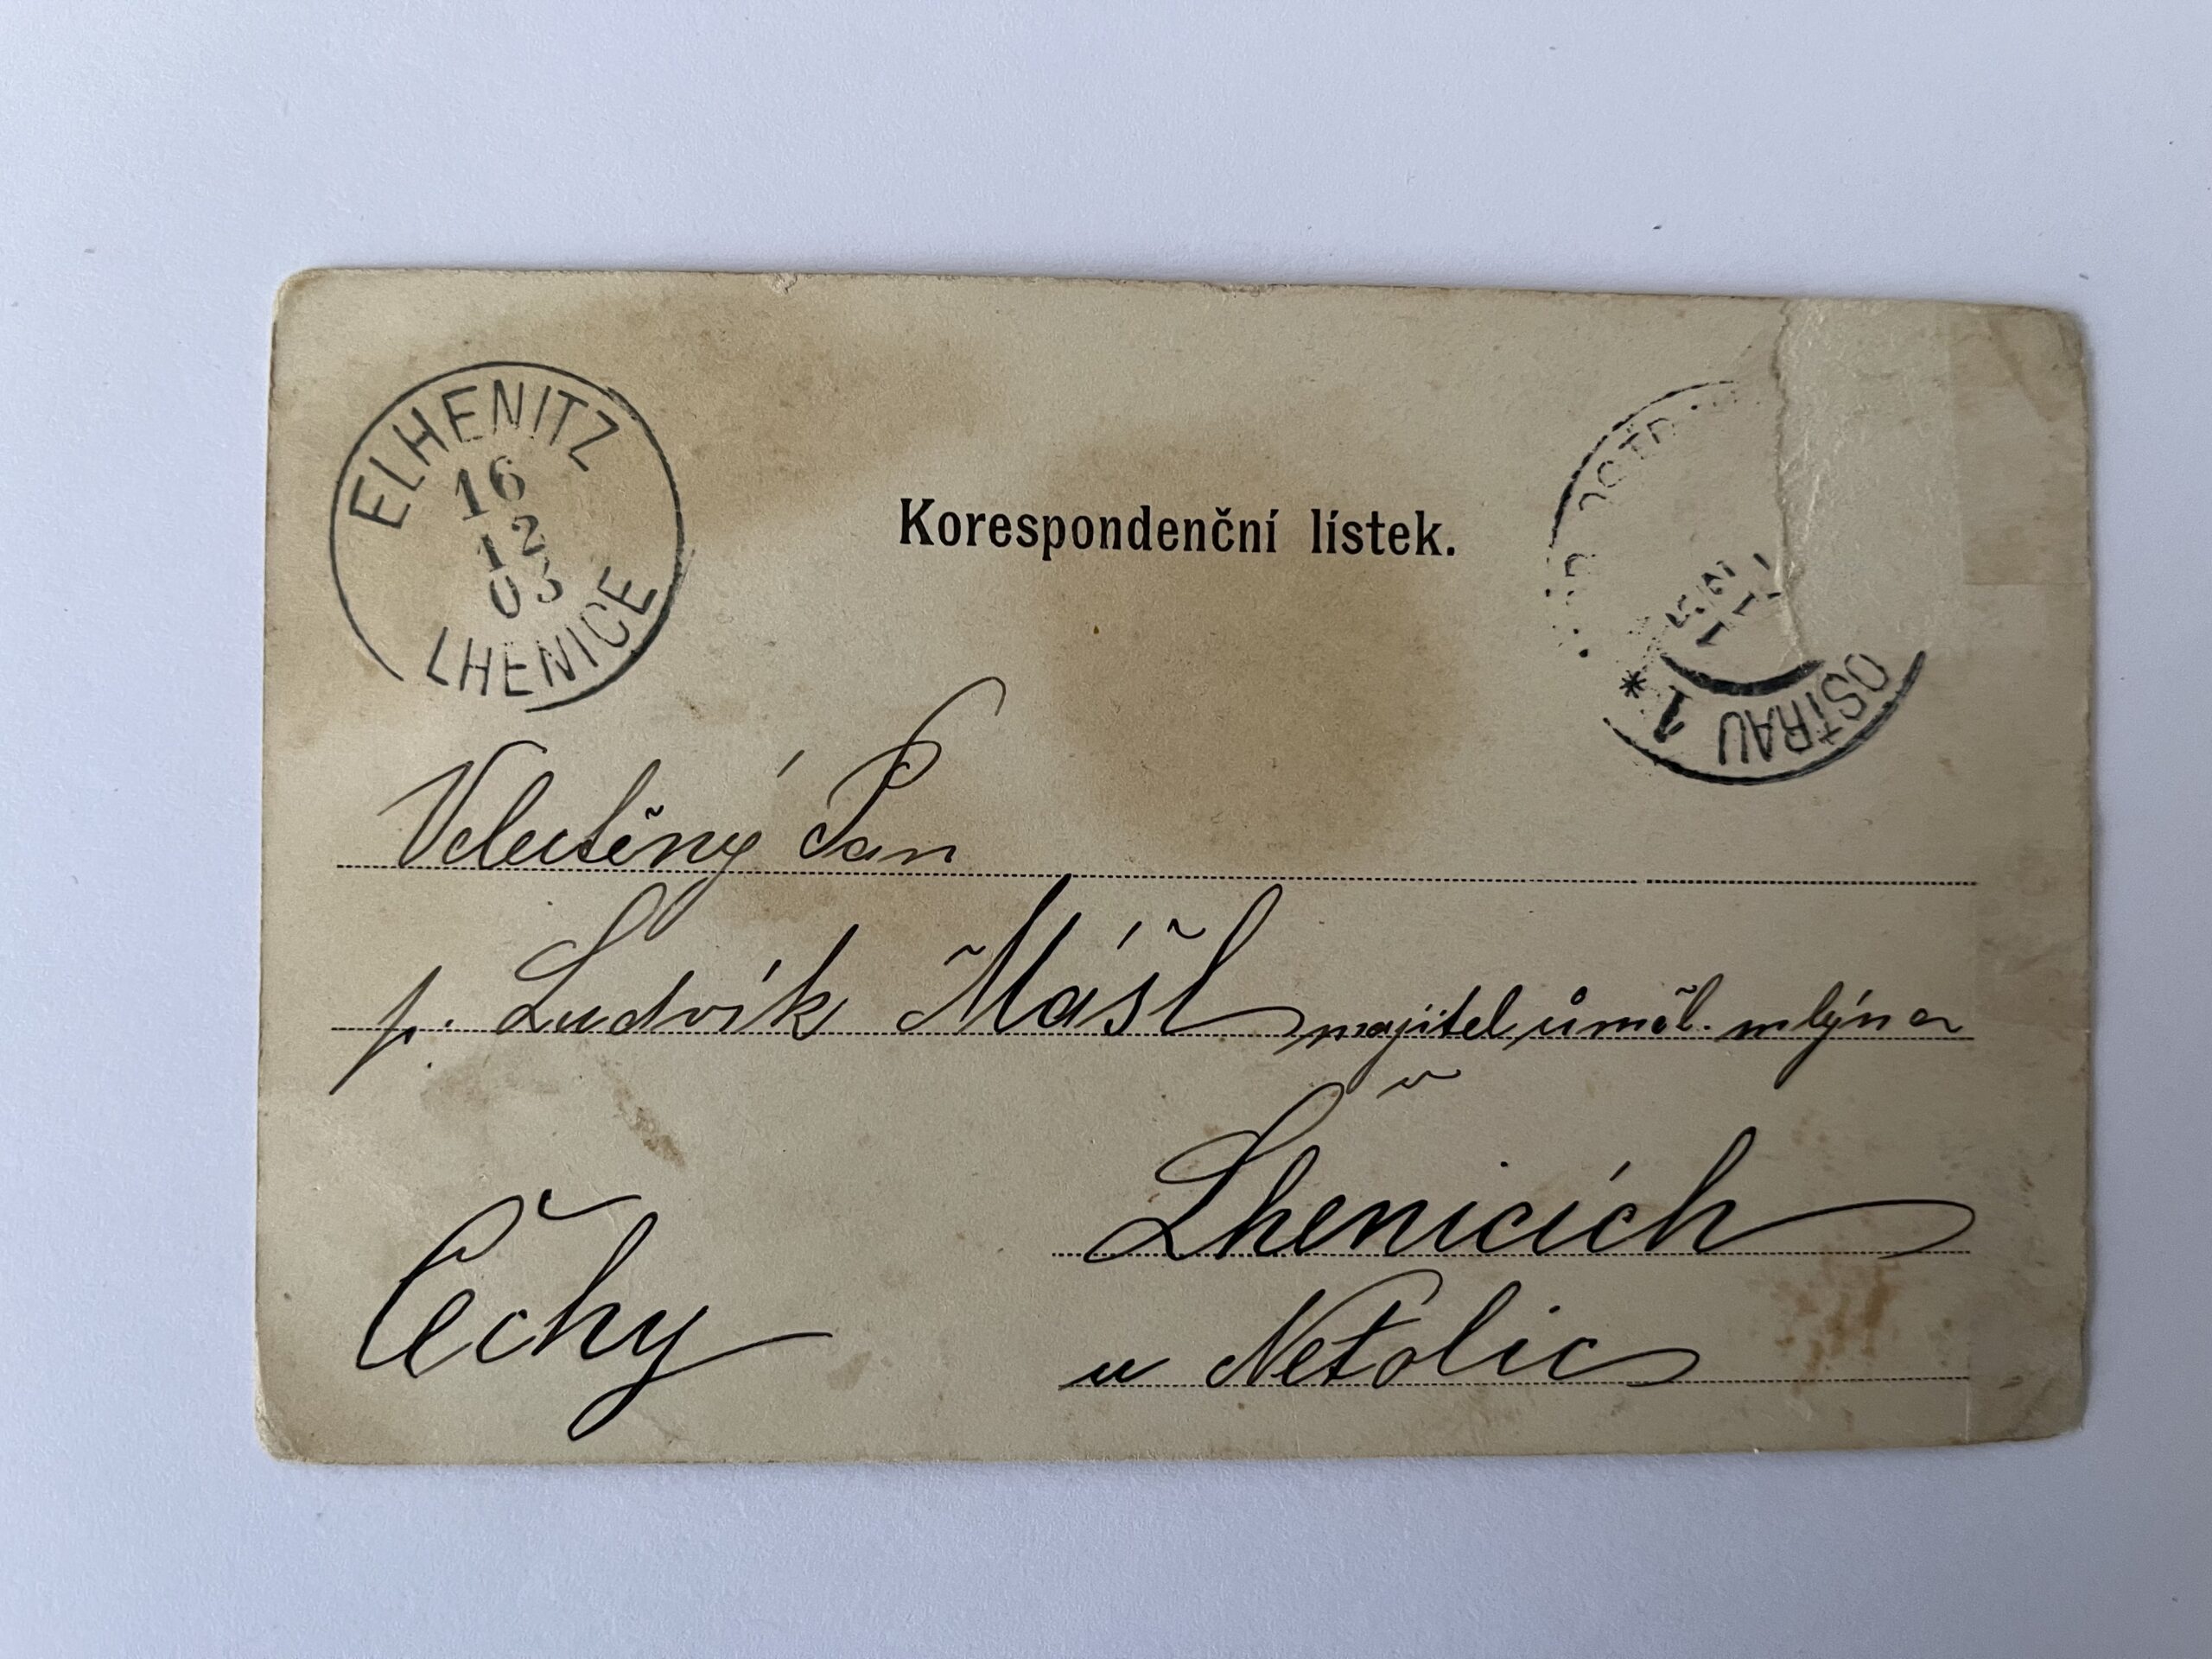 ELHENITZ
16
12
03
LHENICE
Korespondenční lístek.
OSTRAU 1 *
Velectěný Pan
p. Ludvík Mášl majitel uměl. mlýna
v
Lhenicích
u Netolic
Čechy